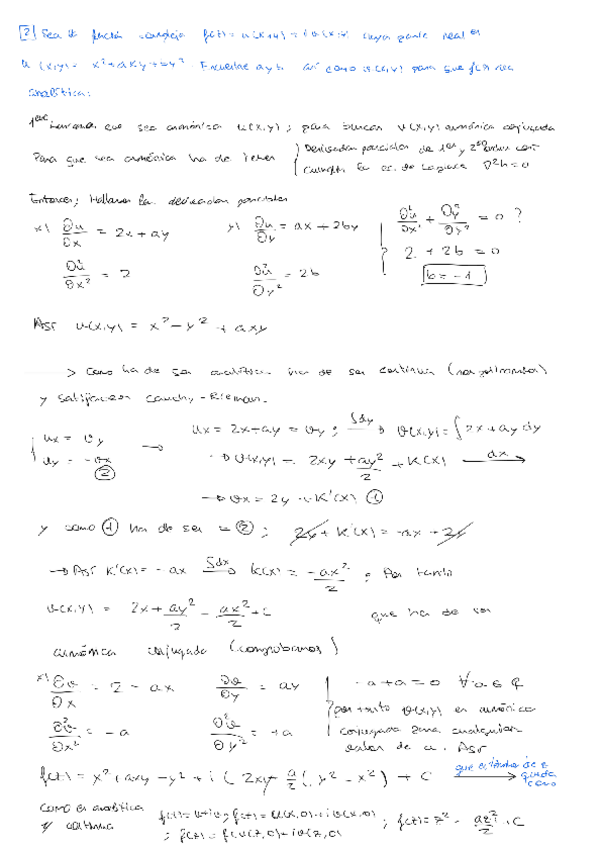 [2] Sea la función compleja f(z) = u(x,y) + i v(x,y) cuya parte real es
u(x,y) = x² + axy + by². Encuentre a y b así como v(x,y) para que f(z) sea
analítica:
que sea armónica u(x,y); para buscar v(x,y) armónica conjugada
Para que sea armónica ha de tener { Derivadas parciales de 1er y 2º orden
Cumplir la ec. de Laplace ∇²u = 0
Entonces; Hallamos las derivadas parciales
x) ∂u/∂x = 2x + ay y) ∂u/∂y = ax + 2by ∂²u/∂x² + ∂²u/∂y² = 0 ?
∂²u/∂x² = 2 ∂²u/∂y² = 2b 2 + 2b = 0
b = -1
Así u(x,y) = x² - y² + axy
> Como ha de ser analítica ha de ser continua (es polinomio)
y satisfacer Cauchy-Rieman.
ux = vy → ux = 2x + ay = vy ; ∫dy → v(x,y) = ∫ 2x + ay dy
uy = -vx ② → v(x,y) = 2xy + ay²/2 + K(x) dx →
→ vx = 2y + K'(x) ①
y como ① ha de ser = ② ; 2y + K'(x) = -ax + 2y
→ Así K'(x) = -ax ∫dx → K(x) = -ax²/2 ; Por tanto
v(x,y) = 2x + ay²/2 - ax²/2 + C que ha de ser
armónica conjugada (comprobamos)
x) ∂v/∂x = 2 - ax ∂v/∂y = ay -a + a = 0 ∀a ∈
por tanto v(x,y) es armónica
∂²v/∂x² = -a ∂²v/∂y² = +a conjugada para cualquier
valor de a. Así
f(z) = x² + axy - y² + i (2xy + a/2 (y² - x²) + C que en términos de z queda como
como es analítica
y continua f(z) = u + iv ; f(z) = u(x,0) + i v(x,0)
; f(z) = u(z,0) + i v(z,0) ; f(z) = z² - az²i/2 + C